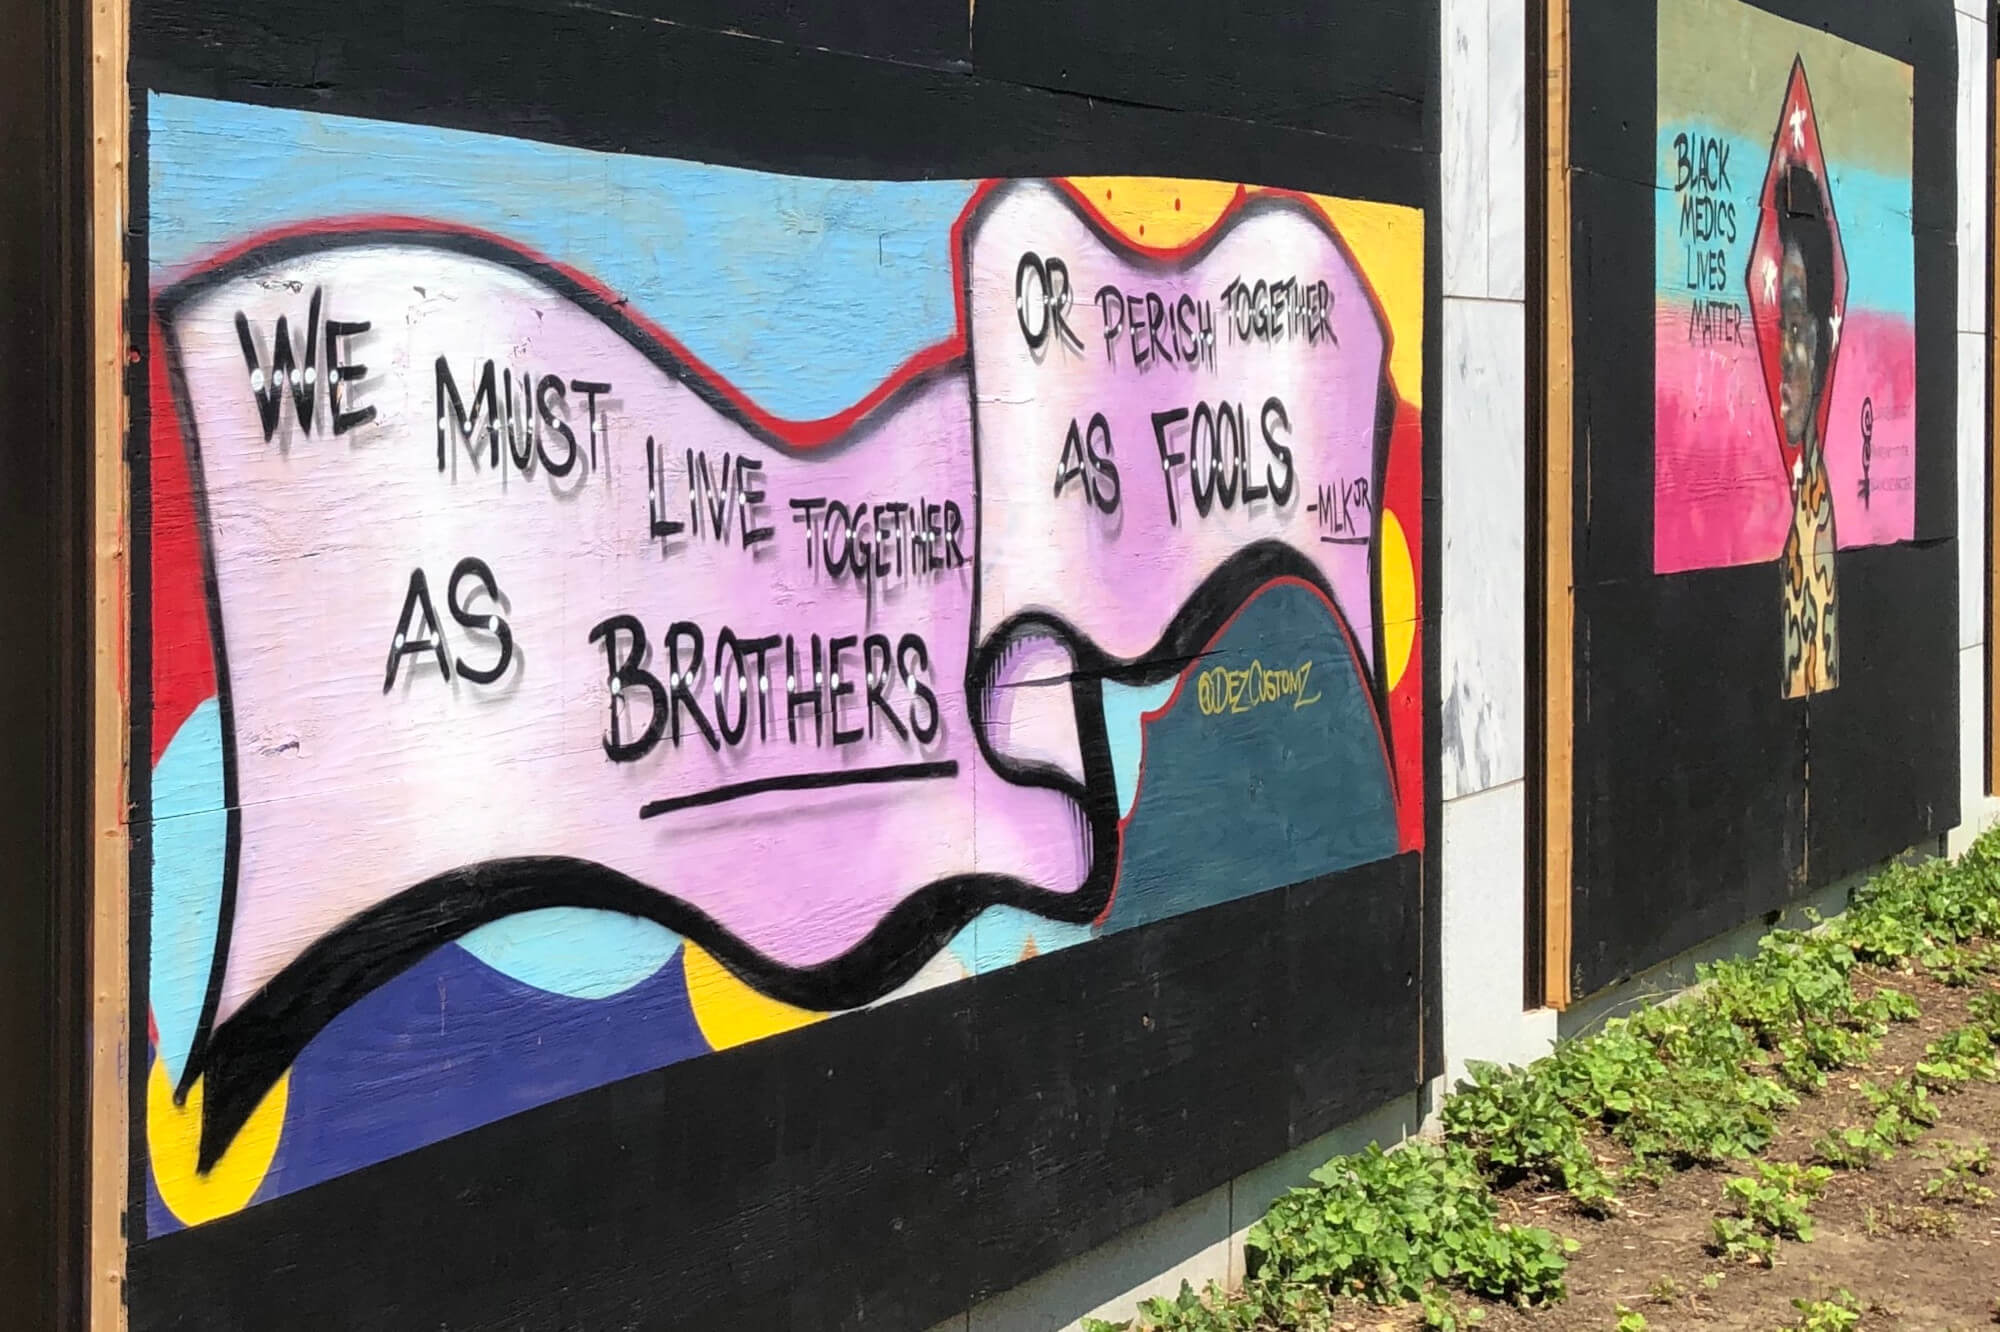 WE MUST LIVE TOGETHER
AS BROTHERS
OR PERISH TOGETHER
AS FOOLS
-MLK JR
@DEZCUSTOMZ
BLACK
MEDICS
LIVES
MATTER